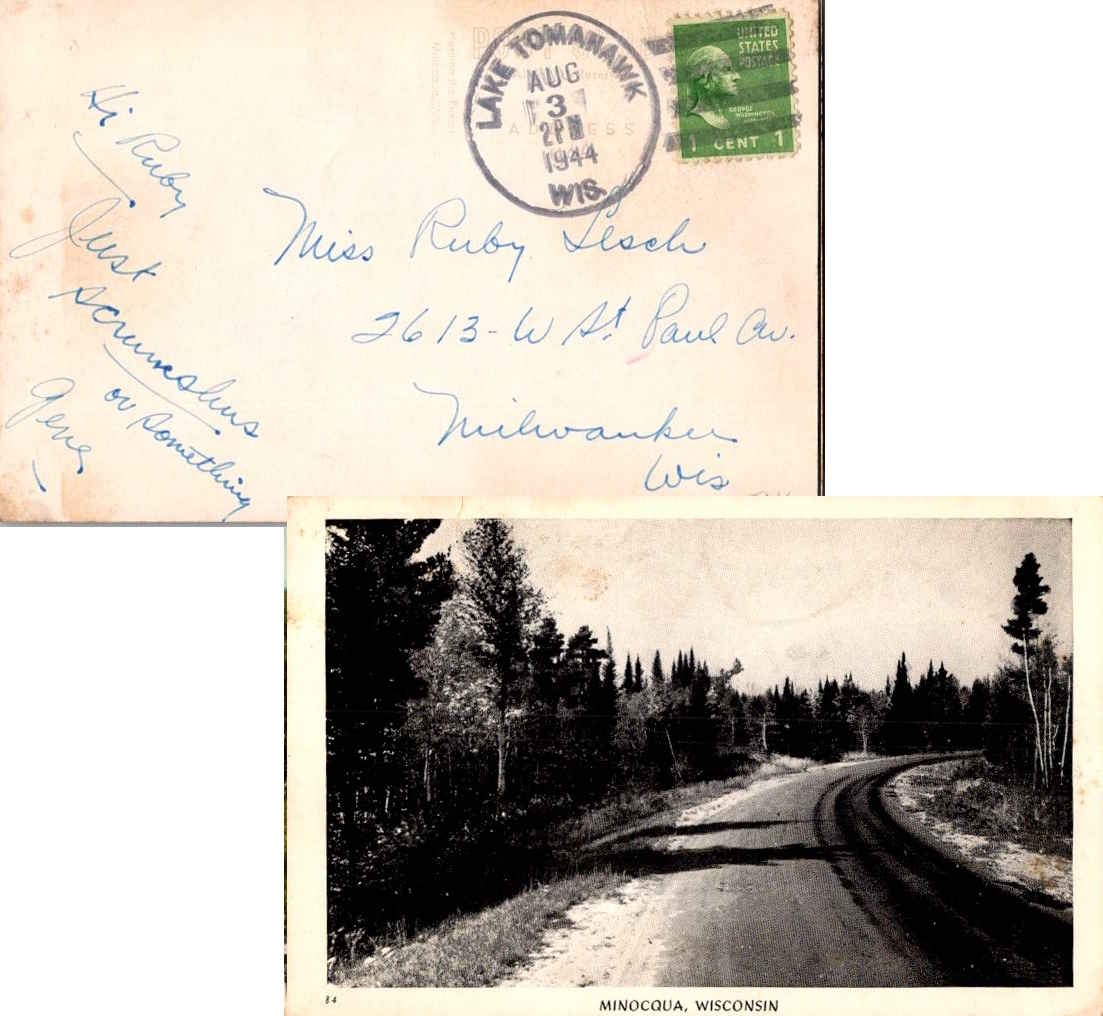 LAKE TOMAHAWK
AUG
3
2PM
1944
WIS.
UNITED
STATES
POSTAGE
GEORGE
WASHINGTON
1 CENT 1
ADDRESS
Hi Ruby
Just
scrumshus
or something
Gene
Miss Ruby Lesch
2613-W St Paul Av.
Milwaukee
Wis
84
MINOCQUA, WISCONSIN